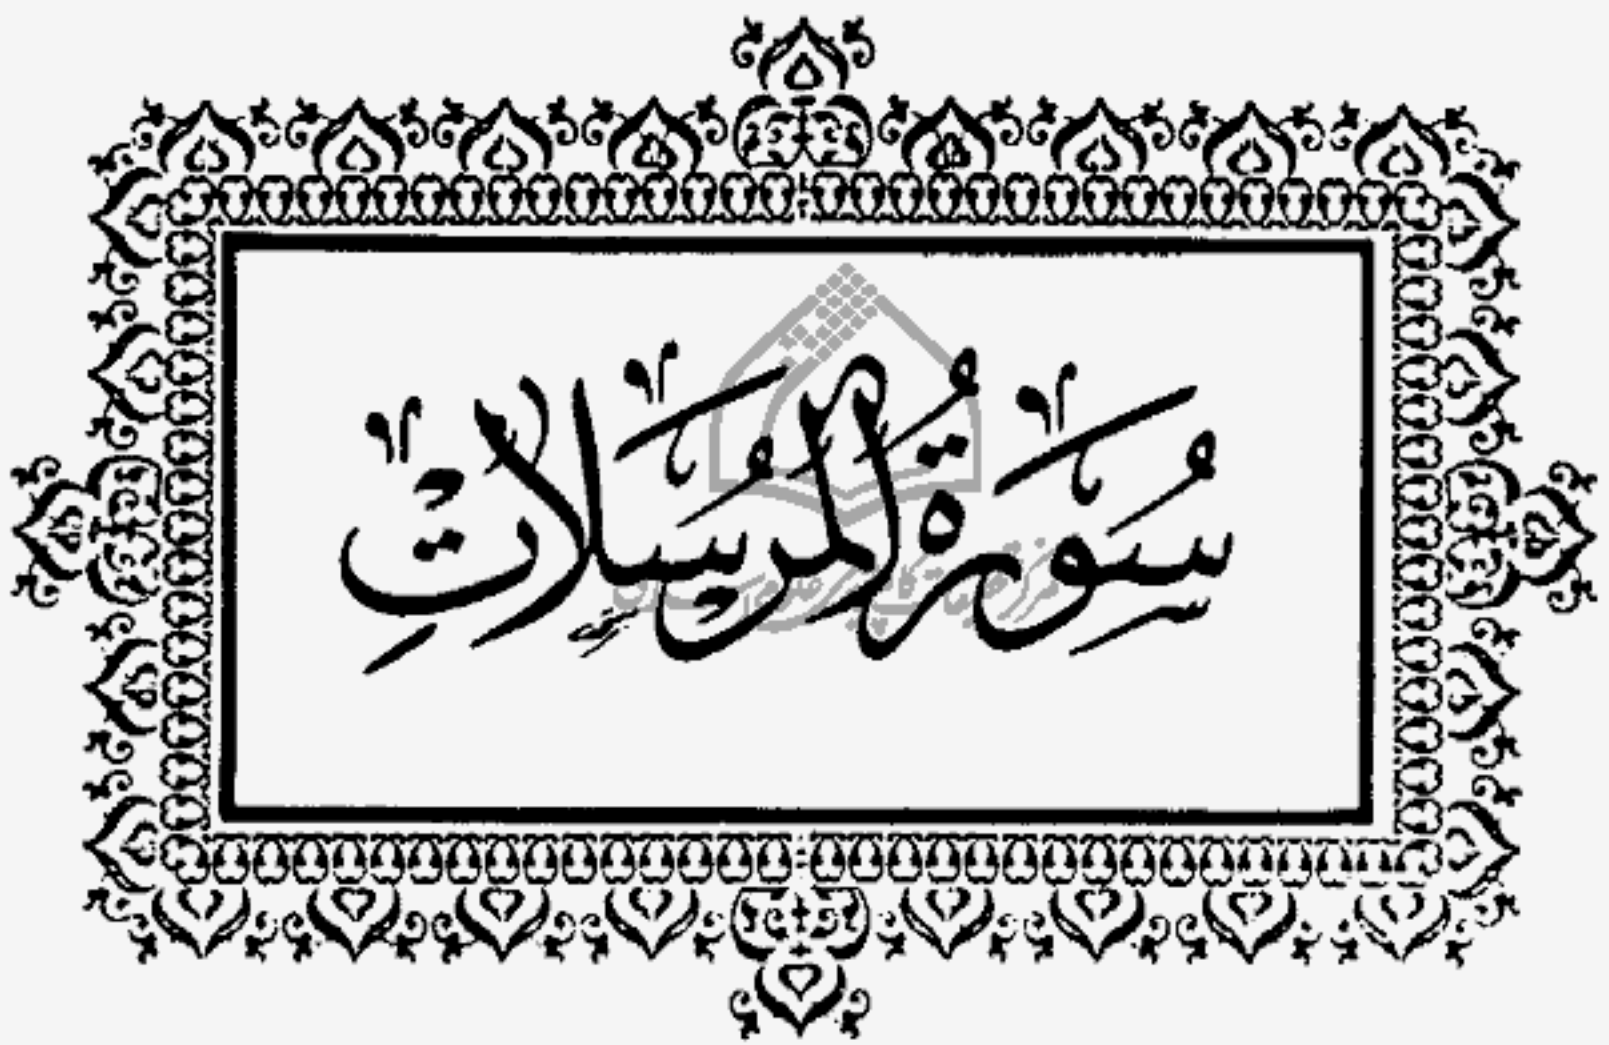 سُورَةُ المُرسَلَاتِ